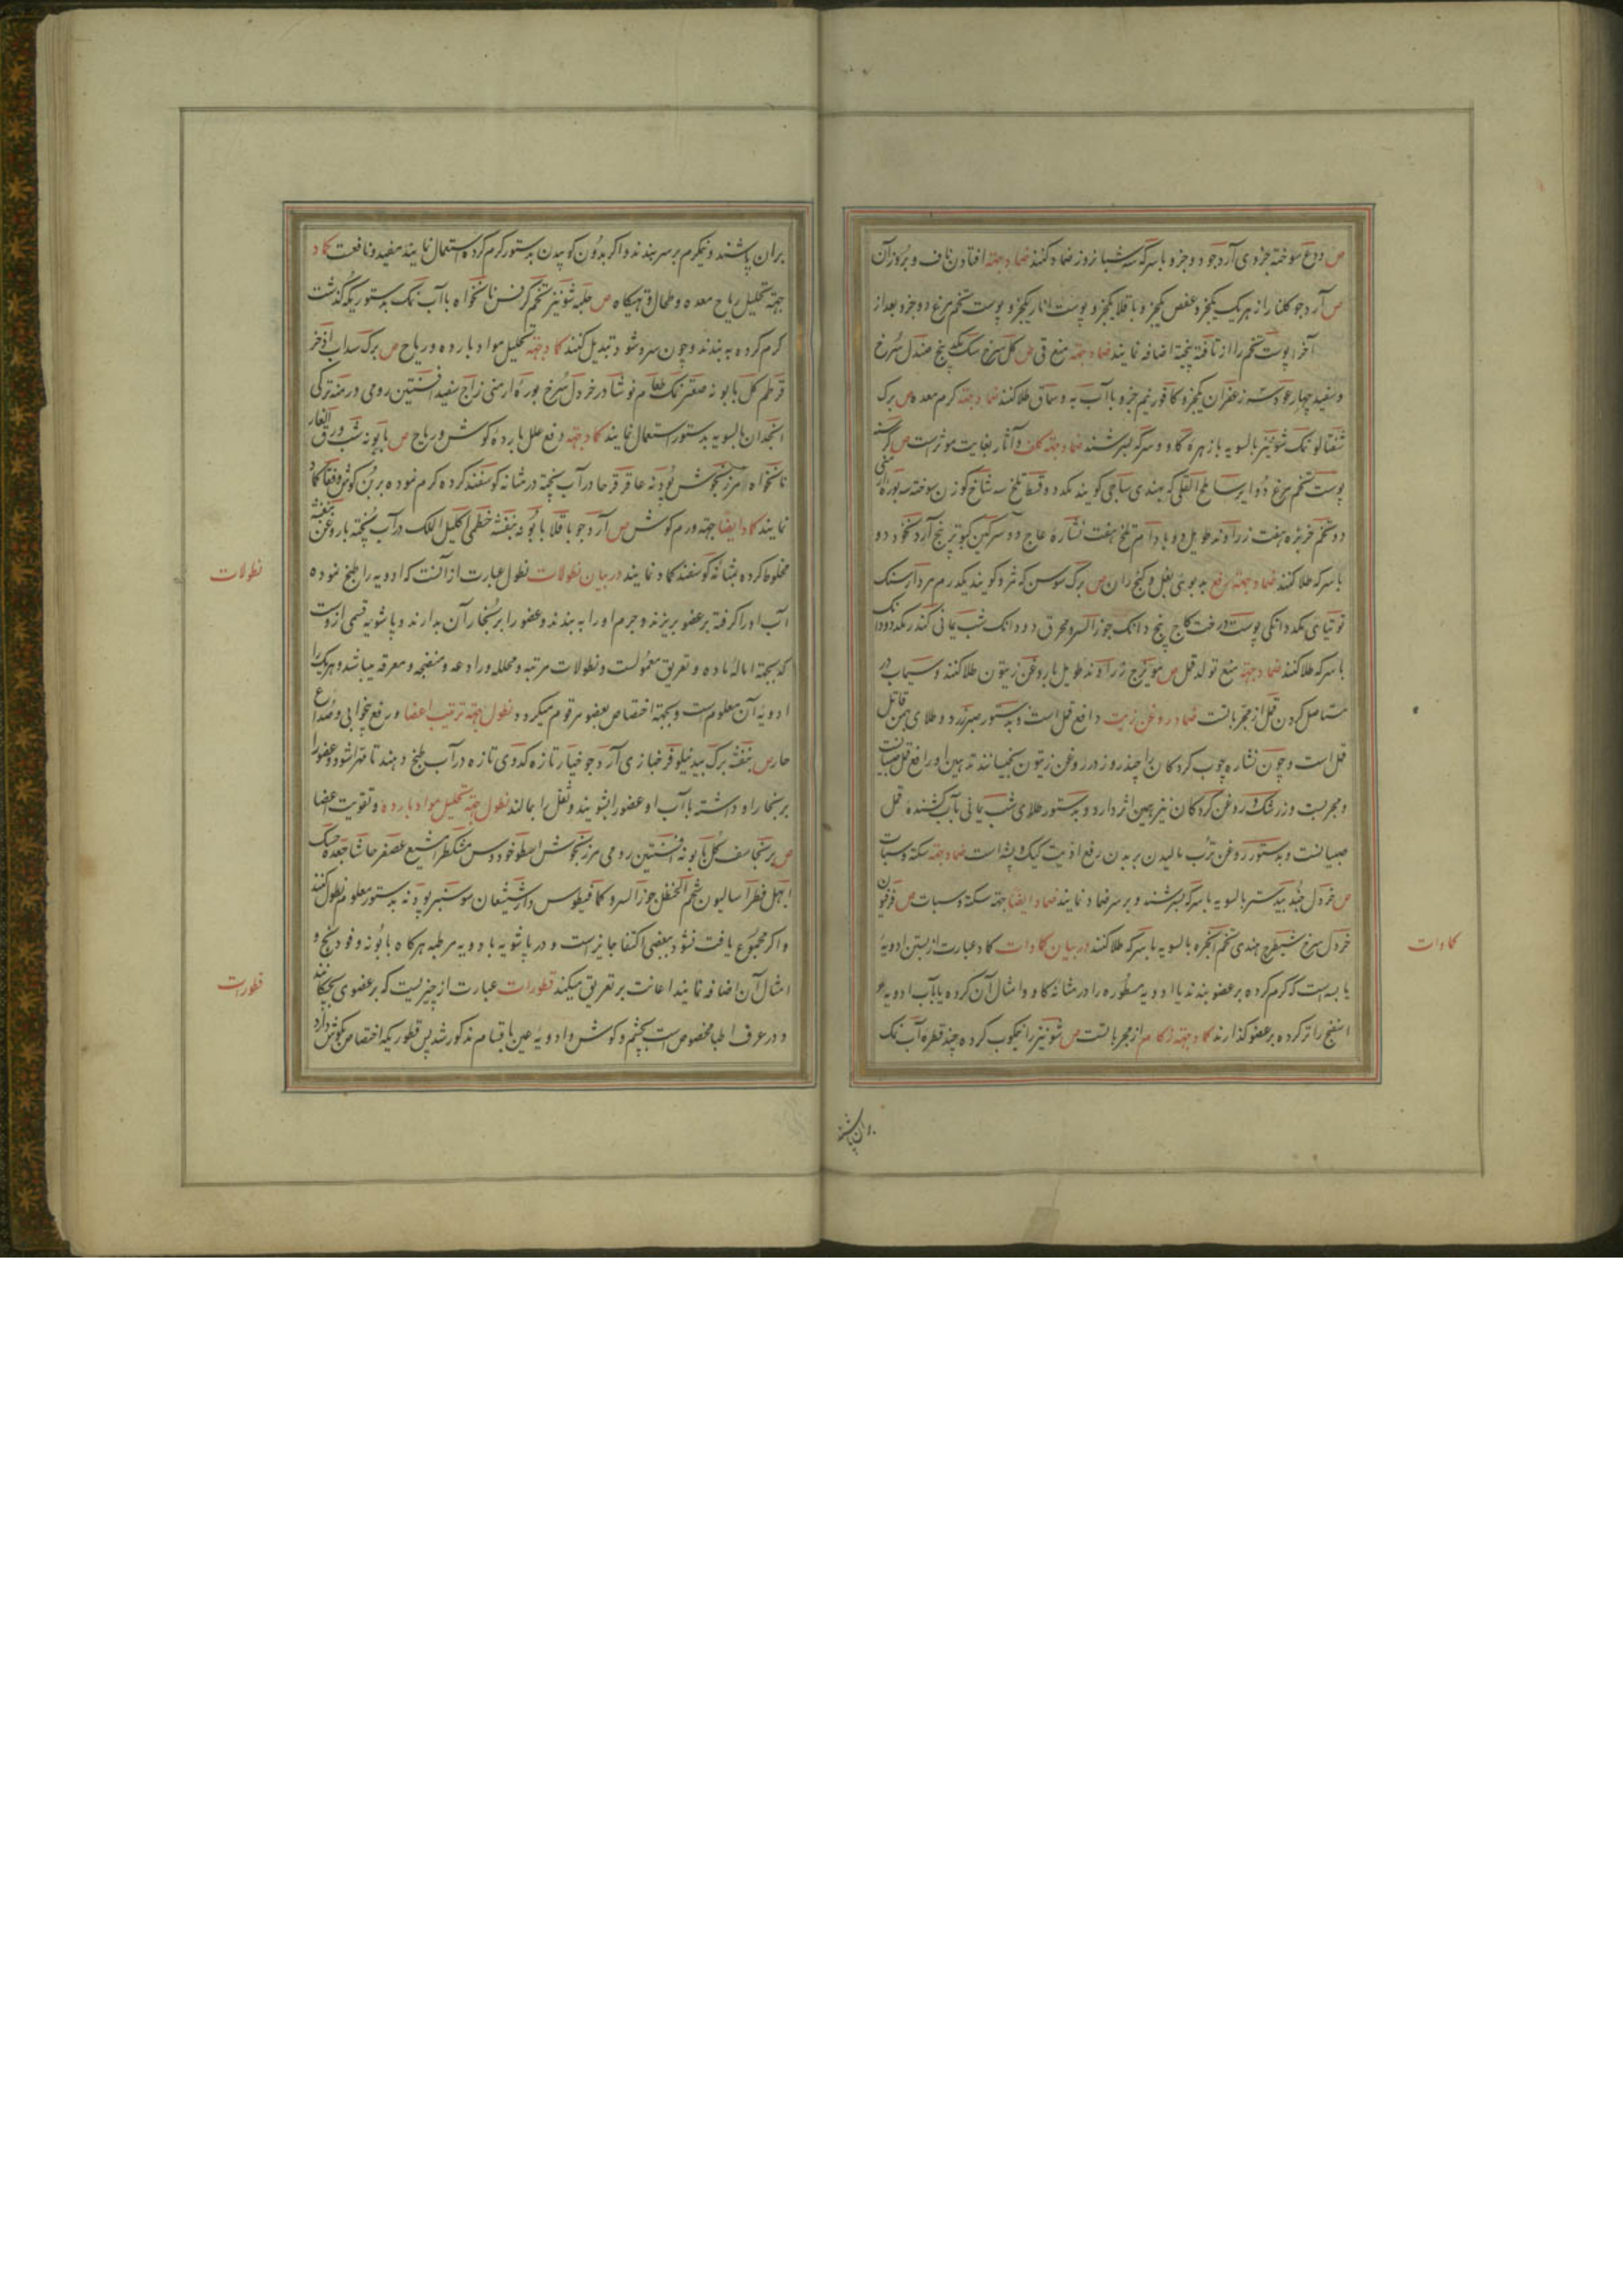 ص ودع سوخته جزوی آرد جو دو جزو با سرکه سه شبانروز ضماد کنند ضماد جهته افتادن ناف و بروز آن
ص آرد جو کلنار از هر یک یکجزو عفص یکجزو باقلا یکجزو پوست انار یکجزو پوست تخم مرغ دو جزو بعد از
آخر او پوست تخم را از تافته پخته اضافه نمایند ضماد جهته منع قی ص کل سرخ سک یک پنج صندل سرخ
و سفید چهار عود سه زعفران یکجزو کافور نیم جزو با آب به و سماق طلا کنند ضماد جهته کرم معده ص برک
شفتالو نمک شونیز بالسویه با زهره کاو و سرکه بسرشند ضماد جهته کلف و آثار بغایت موثر است ص
پوست تخم مرغ دو ایرسا ملح القلی که بهندی ساجی کویند یکدد و قسط تلخ سه شاخ کوزن سوخته سه بوره
دو تخم خربزه هفت زراوند طویل دو بادام تلخ هفت نشاره عاج دو سرکین کبوتر پنج آرد نخود دو
با سرکه طلا کنند ضماد جهته رفع بدبوئی بغل و کنج ران ص برک سوسن که کویند یکدرم مردارسنک
توتیای یکدد دانکی پوست درخت کاج پنج دانک جوز السرو محرق دو دانک شب یمانی کندر یکدد
با سرکه طلا کنند ضماد جهته منع تولد قمل ص مویزج زراوند طویل با روغن زیتون طلا کنند و سیماب در
مستاصل کردن قمل از مجرباتست ضماد روغن زیت دافع قمل است و بدستور صبر زرد و طلای قاتل
قمل است و چون نشاره چوب کردکان را چند روز در روغن زیتون بخیسانند تدهین او رافع قمل
و مجربست و زرشک و روغن کردکان نیز همین اثر دارد و بدستور طلای شب یمانی با آب کشنده قمل
صبیانست و بدستور روغن ترب مالیدن بر بدن رفع اذیت کیک و پشه است ضماد جهته سکته و سبات
ص خردل جندبیدستر بالسویه با سرکه بسرشند و بر سر ضماد نمایند ضماد ایضا جهته سکته و سبات ص فرفیون
خردل سرخ شیطرج هندی تخم انجره بالسویه با سرکه طلا کنند در بیان کمادات کماد عبارت از بستن ادویهٔ
یابسه است که کرم کرده بر عضو بندند یا ادویه مسطوره را در مثانه کاو و امثال آن کرده یا بآب ادویه
اسفنج را تر کرده بر عضو کذارند کماد جهته زکام از مجرباتست ص شونیز را نیمکوب کرده چند قطره آب نمک
کمادات
بران پاشند
بران پاشند و نیکرم بر سر بندند و اکر بدون کوبیدن بدستور کرم کرده استعمال نمایند مفید و نافعست کماد
جهته تحلیل ریاح معده و طحال و تهیکاه ص حلبه شونیز تخم کرفس نانخواه با آب نمک بدستوریکه کذشت
کرم کرده به بندند و چون سرد شود تبدیل کنند کماد جهته تحلیل مواد بارده و ریاح ص برک سداب اذخر
قرطم کل بابونه صعتر نمک طعام نوشادر خردل سرخ بوره ارمنی زاج سفید افسنتین رومی درمنه ترکی
انجدان بالسویه بدستور استعمال نمایند کماد جهته دفع علل بارده کوش و ریاح ص بابونه شب ورق الغار
نانخواه مرزنجوش پودنه عاقرقرحا در آب پخته در مثانه کوسفند کرده کرم نموده بر بن کوش
نمایند کماد ایضا جهته ورم کوش ص آرد جو باقلا بابونه بنفشه خطمی اکلیل الملک در آب پخته با روغن بنفشه
مخلوط کرده بمثانه کوسفند کماد نمایند در بیان نطولات نطول عبارت از آنست که ادویه را طبخ نموده
آب او را کرفته بر عضو بریزند و جرم او را به بندند و عضو را بر بخار آن بدارند و پاشویه قسمی از وست
که بجهته اماله ماده و تعریق معمولست و نطولات مرتبه و محلله و رادعه و منضجه و معرقه میباشد و هر یک را
ادویه آن معلوم است و بجهته اختصاص بعضو مرقوم میکردد نطول جهته ترتیب اعضا و رفع بیخوابی و صداع
حار ص بنفشه برک بید نیلوفر خبازی آرد جو خیار تازه کدوی تازه در آب طبخ دهند تا مهرا شود و عضو را
بر بخار او داشته با آب او عضو را بشویند و ثفل را بمالند نطول جهته تحلیل مواد بارده و تقویت اعضا
ص برنجاسف کل بابونه افسنتین رومی مرزنجوش اسطوخودوس مشکطرامشیع عصفر حاشا جعده
ابهل فطراسالیون شحم الحنظل جوز السرو کمافیطوس دارشیشعان سوسنبر پودنه بدستور معلوم نطول کنند
و اکر مجموع یافت نشود ببعضی اکتفا جایز است و در پاشویه با ادویه مرطبه هرکاه بابونه و فودنج و
امثال آن اضافه نمایند اعانت بر تعریق میکند قطورات عبارت از چیزیست که بر عضوی بچکانند
و در عرف اطبا مخصوص است بچشم و کوش و ادویه عین باقسام مذکور شد پس قطوریکه اختصاص بکوش دارد
نطولات
قطورات